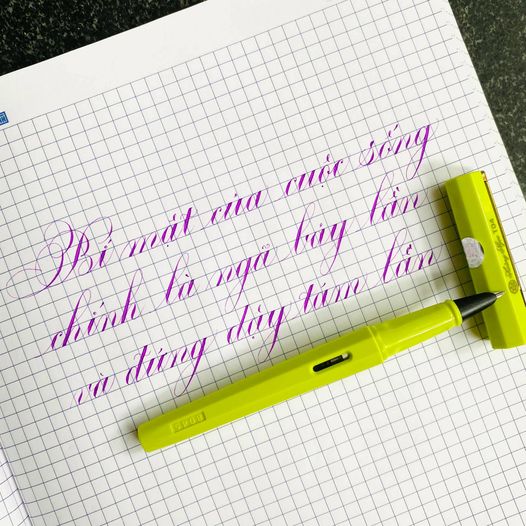 Bí mật của cuộc sống
chính là ngã bảy lần
và đứng dậy tám lần